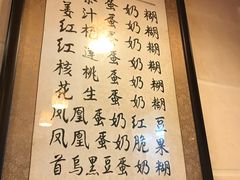 蛋奶糊
姜汁蛋奶糊
红蛋奶糊
红莲蛋奶糊
核桃蛋奶糊
花生蛋奶糊
凤凰蛋奶红豆
凤凰蛋奶脆果
首乌黑豆蛋奶糊